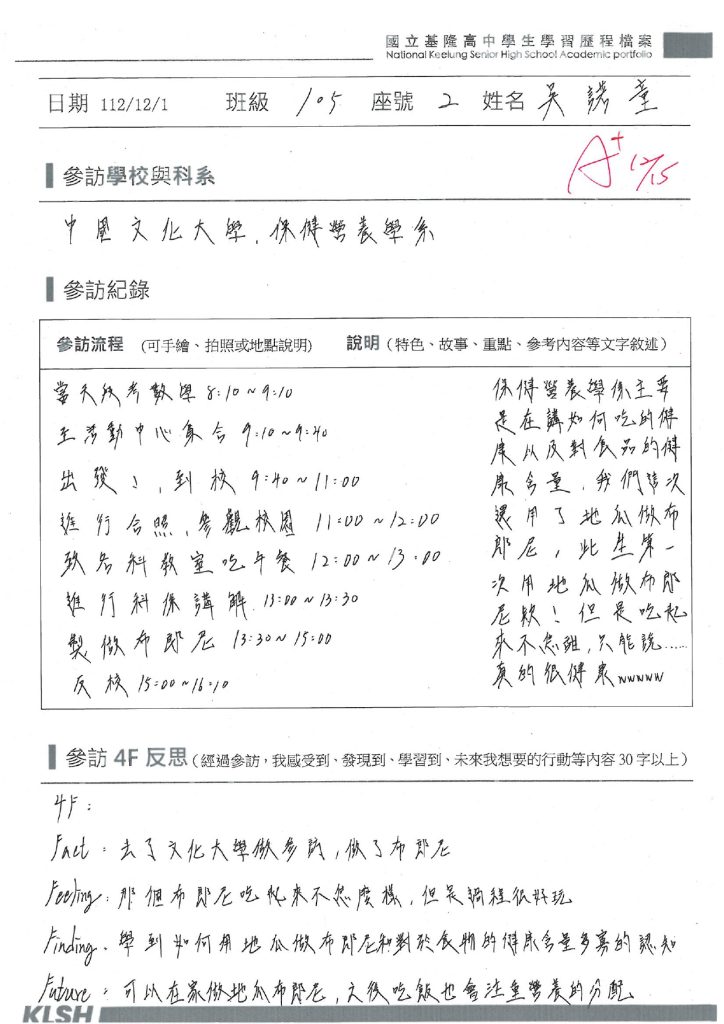 國立基隆高中學生學習歷程檔案
National Keelung Senior High School Academic portfolio
日期 112/12/1 班級 105 座號 2 姓名 吳
A+ 12/15
參訪學校與科系
中國文化大學,保健營養學系
參訪紀錄
參訪流程 (可手繪、拍照或地點說明) 說明 (特色、故事、重點、參考內容等文字敘述)
當天段考數學 8:10~9:10
至活動中心集合 9:10~9:40
出發!,到校 9:40~11:00
進行合照,參觀校園 11:00~12:00
致各科教室吃午餐 12:00~13:00
進行科係講解 13:00~13:30
製做布郎尼 13:30~15:00
反校 15:00~16:10
保健營養學係主要
是在講如何吃的健
康以及對食品的健
康含量,我們這次
還用了地瓜做布
郎尼,此生第一
次用地瓜做布郎
尼欸!但是吃起
來不怎甜,只能說……
真的很健康wwwww
參訪 4F 反思 (經過參訪,我感受到、發現到、學習到、未來我想要的行動等內容 30 字以上)
4F:
Fact:去了文化大學做參訪,做了布郎尼
Feeling:那個布郎尼吃起來不怎麼樣,但是過程很好玩
Finding:學到如何用地瓜做布郎尼和對於食物的健康含量多寡的認知
Future:可以在家做地瓜布郎尼,之後吃飯也會注重營養的分配
KLSH